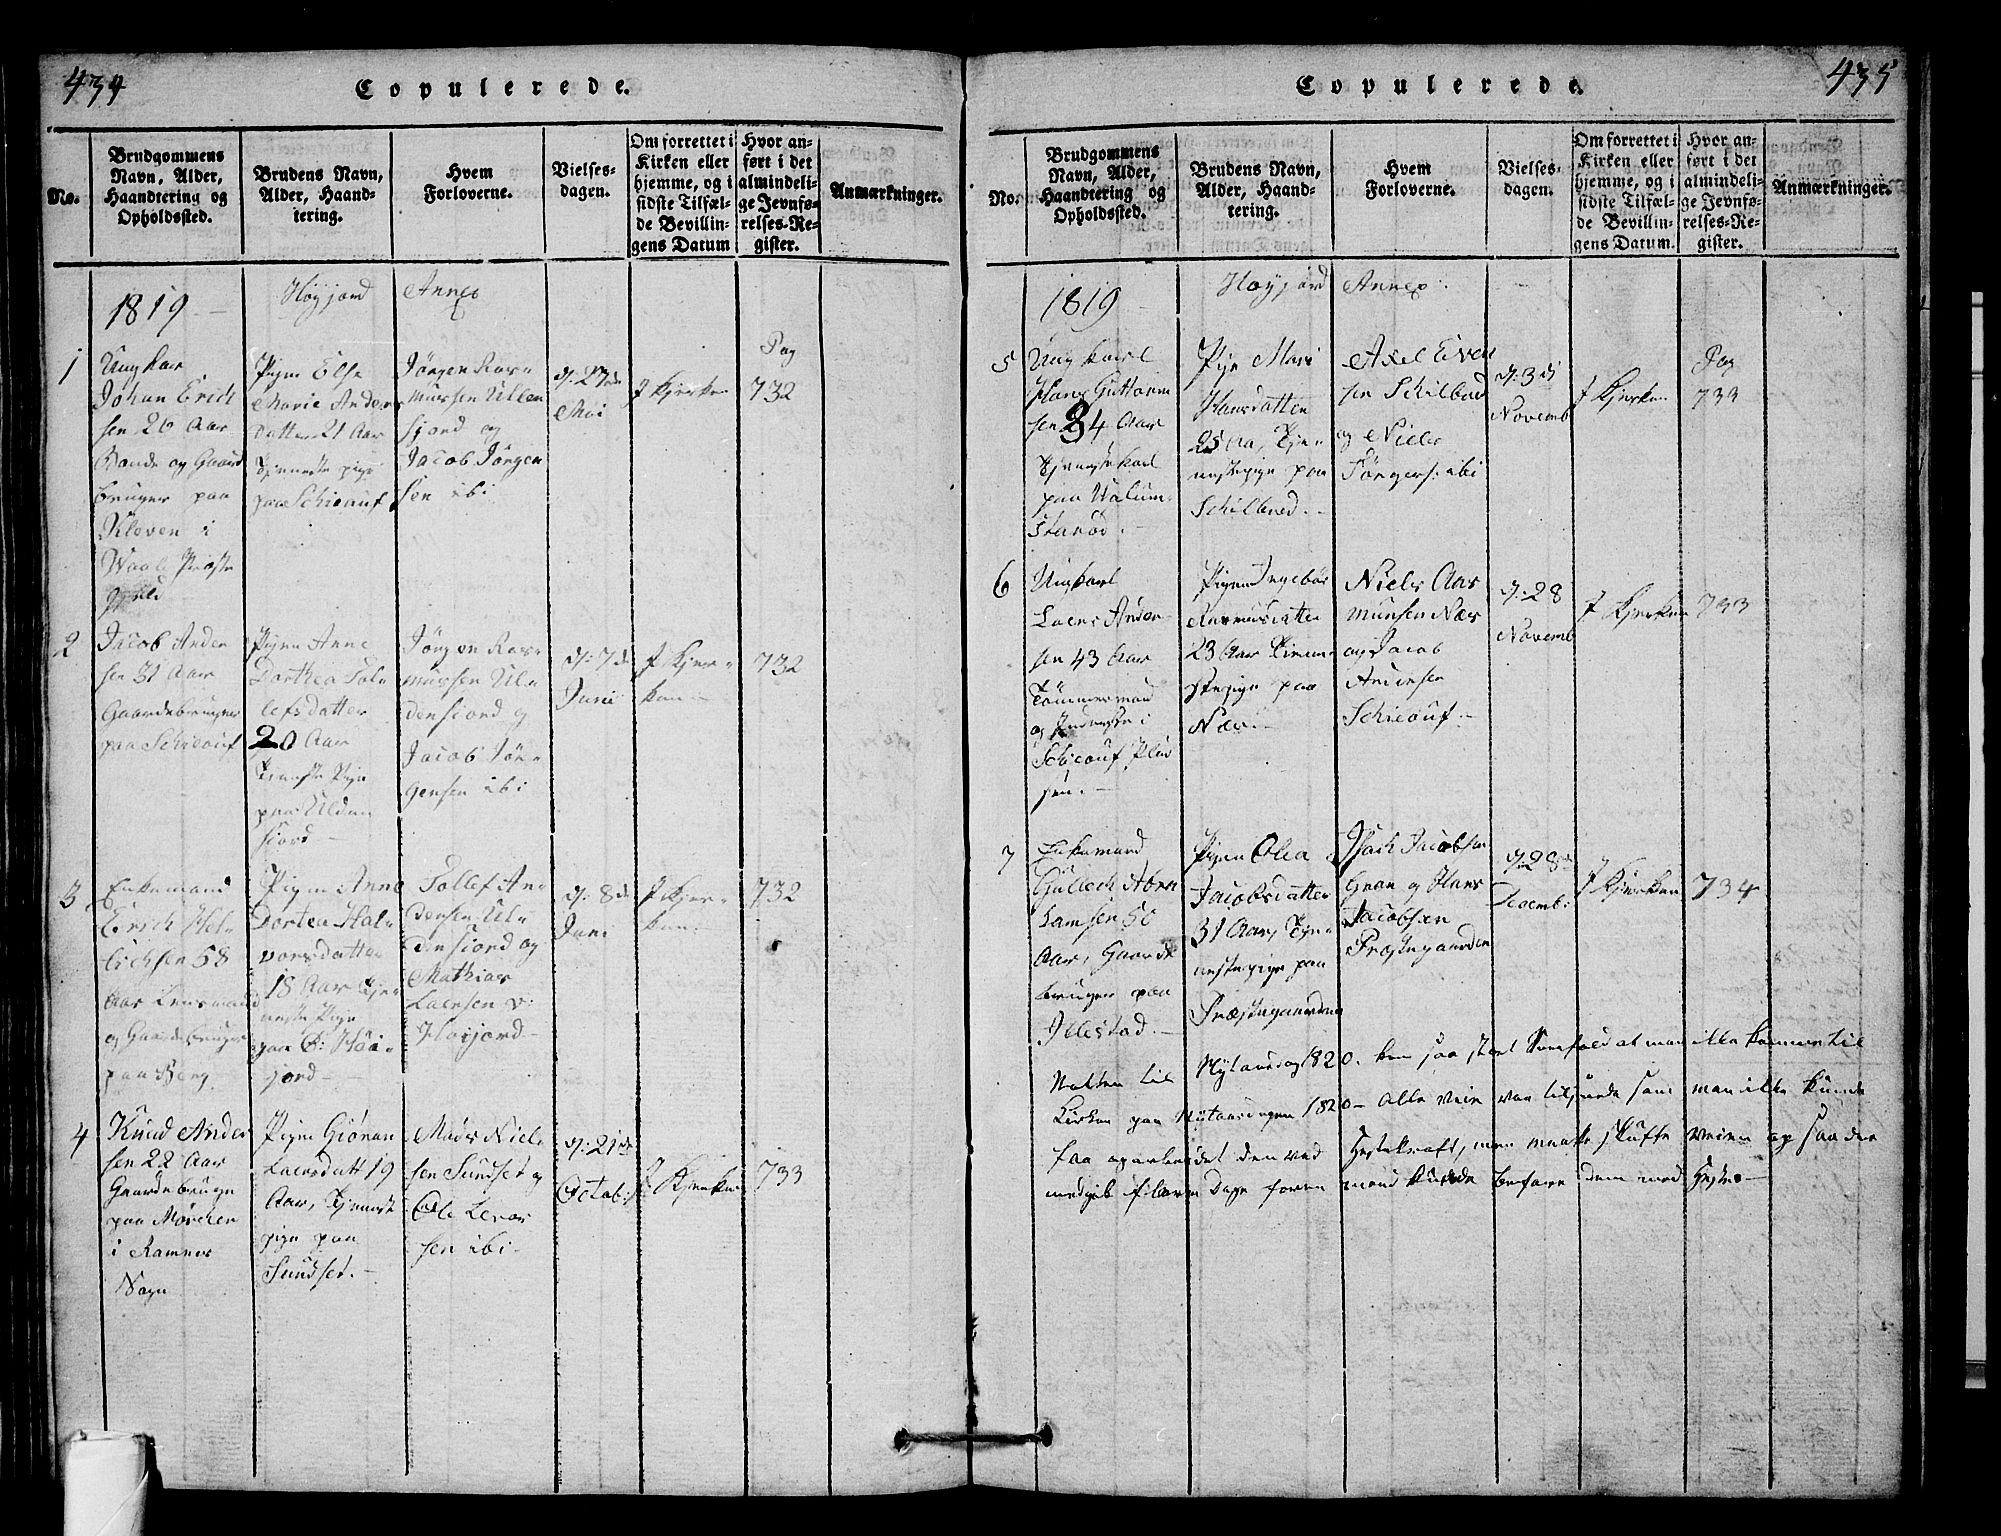 434
Copulerede.
No.
Brudgommens
Navn, Alder,
Haandtering og
Opholdssted.
Brudens Navn,
Alder, Haand-
tering.
Hvem
Forloverne.
Vielses-
dagen.
Om forrettet i
Kirken eller
hjemme, og i
sidste Tilfæl-
de Bevillin-
gens Datum
Hvor an-
ført i det
almindeli-
ge Jevnfø-
relses-Re-
gister.
Anmærkninger.
1819
Høyjord
Annex
1
Ung kar
Johan Erich
sen 26 Aar
Bonde og Gaard
bruger paa
Kleven i
Waale Præste
gield
Pigen Else
Marie Anders
datter 21 Aar
Tienneste pige
paa Schieauf
Jørgen Ras-
mussen Ullen
sjord og
Jacob Jörgen
sen ibi
d: 27de
Mai
J Kjerken
Pag
732
2
Jacob Ander
sen 31 Aar
Gaardebruger
paa Schieauf
Pigen Anne
Dorthea Tol-
lefsdatter
20 Aar
Tieneste Pige
paa Ulden
siord
Jörgen Ras-
mussen Ul-
densiord g
Jacob Jör-
gensen ibi
d: 7de
Juni
J Kjer-
ken
732
3
Enkemand
Erich Hel-
lichsen 58
Aar Lensmand
og Gaardebruger
paa Berg
Pigen Anne
Dortea Hal-
vorsdatter
18 Aar Tje-
neste Pige
paa Höi-
jord
Tollef An-
densen Ul-
densiord og
Mathias
Larsen
Høijord
d: 8de
Juni
J Kjer-
ken
732
4
Knud Ander
sen 22 Aar
Gaardebruge
paa
i Ramnes
Sogn
Pigen Giöran
Laersdatt 19
Aar, Tjeneste
pige paa
Sundset.
Mads Niel-
sen Sundset og
Ole Lars
sen ibi
d: 21de
Octob:
J Kjerken
733
435
Copulerede.
No.
Brudgommens
Navn, Alder,
Haandtering og
Opholdssted.
Brudens Navn,
Alder, Haand-
tering.
Hvem
Forloverne.
Vielses-
dagen.
Om forrettet i
Kirken eller
hjemme, og i
sidste Tilfæl-
de Bevillin-
gens Datum.
Hvor an-
ført i det
almindeli-
ge Jevnfø-
relses-Re-
gister.
Anmærkninger.
1819
Høyjord
Annex
5
Ung karl
Hans Guttorm
sen 34 Aar
Tjenestekarl
paa Walum-
stanöd.
Pige Mari
Hansdatter
25 Aa, Tje-
nestepige paa
Schilbred.
Axel Even
sen Schilbred
og Niels
Jörgens: ibi
d: 3di
Novemb
J Kjerken
Pag
733
6
Ungkarl
Laers Ander
sen 43 Aar
Tömmermand
og Inderste i
Schieauf Plad
sen.
Pigen Ingebör
Rasmusdatter
23 Aar Tienne-
stepige paa
Nær.
Niels Aas
munsen Nær
og Jacob
Andersen
Schieauf
d: 28
Novemb
J Kjerken
733
7
Enkemand
Gullech Abra
hamsen 50
Aar, Gaarde
bruger paa
Illestad.
Pigen Olea
Jacobsdatter
31 Aar, Tje-
nestepige paa
Præstegaarden
Isach Jacobsen
Gran og Hans
Jacobsen
Præstegaarden
d: 28de
Decemb:
J Kjerken
734
Natten til Nytaarsdag 1820. kom saa stort Sneefald at man ikke kommer til
Kirken paa Nytaarsdagen 1820 - Alle Veie var tilsneede saa man ikke kunde
faa oparbeidet den ved Hestekraft, men maatte skuffe veien op saa der
medgik flere Dage foren mand kunde befare dem med Heste